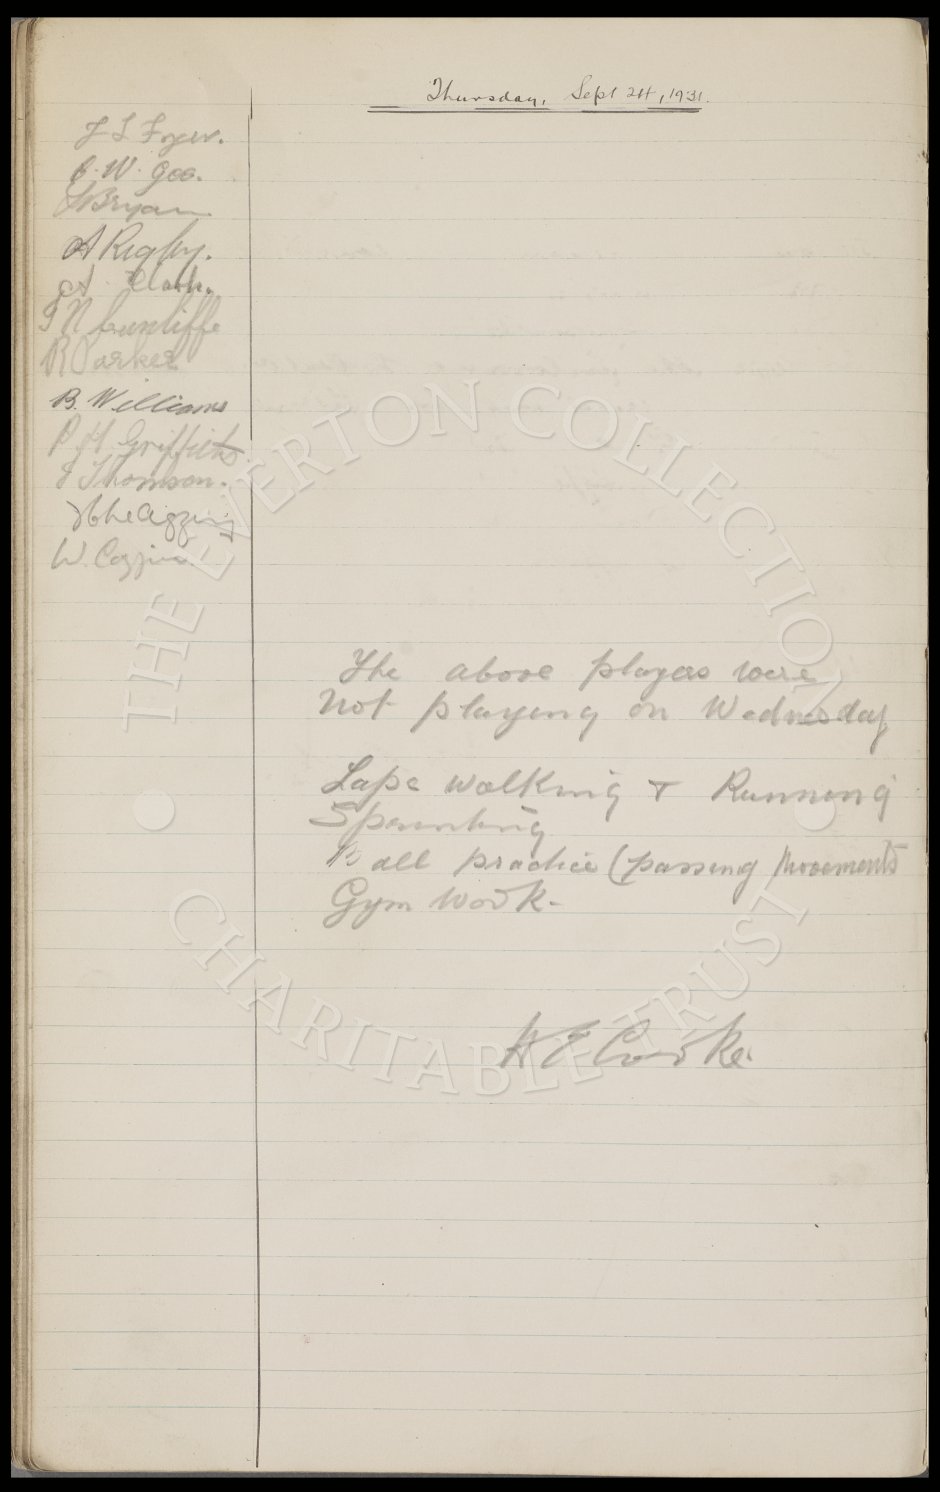 Thursday, Sept 24, 1931.
J L Fryer.
C. W. Gee.
Bryan
A Rigby.
A Clark.
J N Cunliffe
R Parker
B. Williams
P H Griffiths
J Thomson.
W. Coggins
The above players were
not playing on Wednesday
Laps walking & Running
Sprinting
Ball practice (passing movements
Gym Work.
H E Cooke.
THE EVERTON COLLECTION
CHARITABLE TRUST